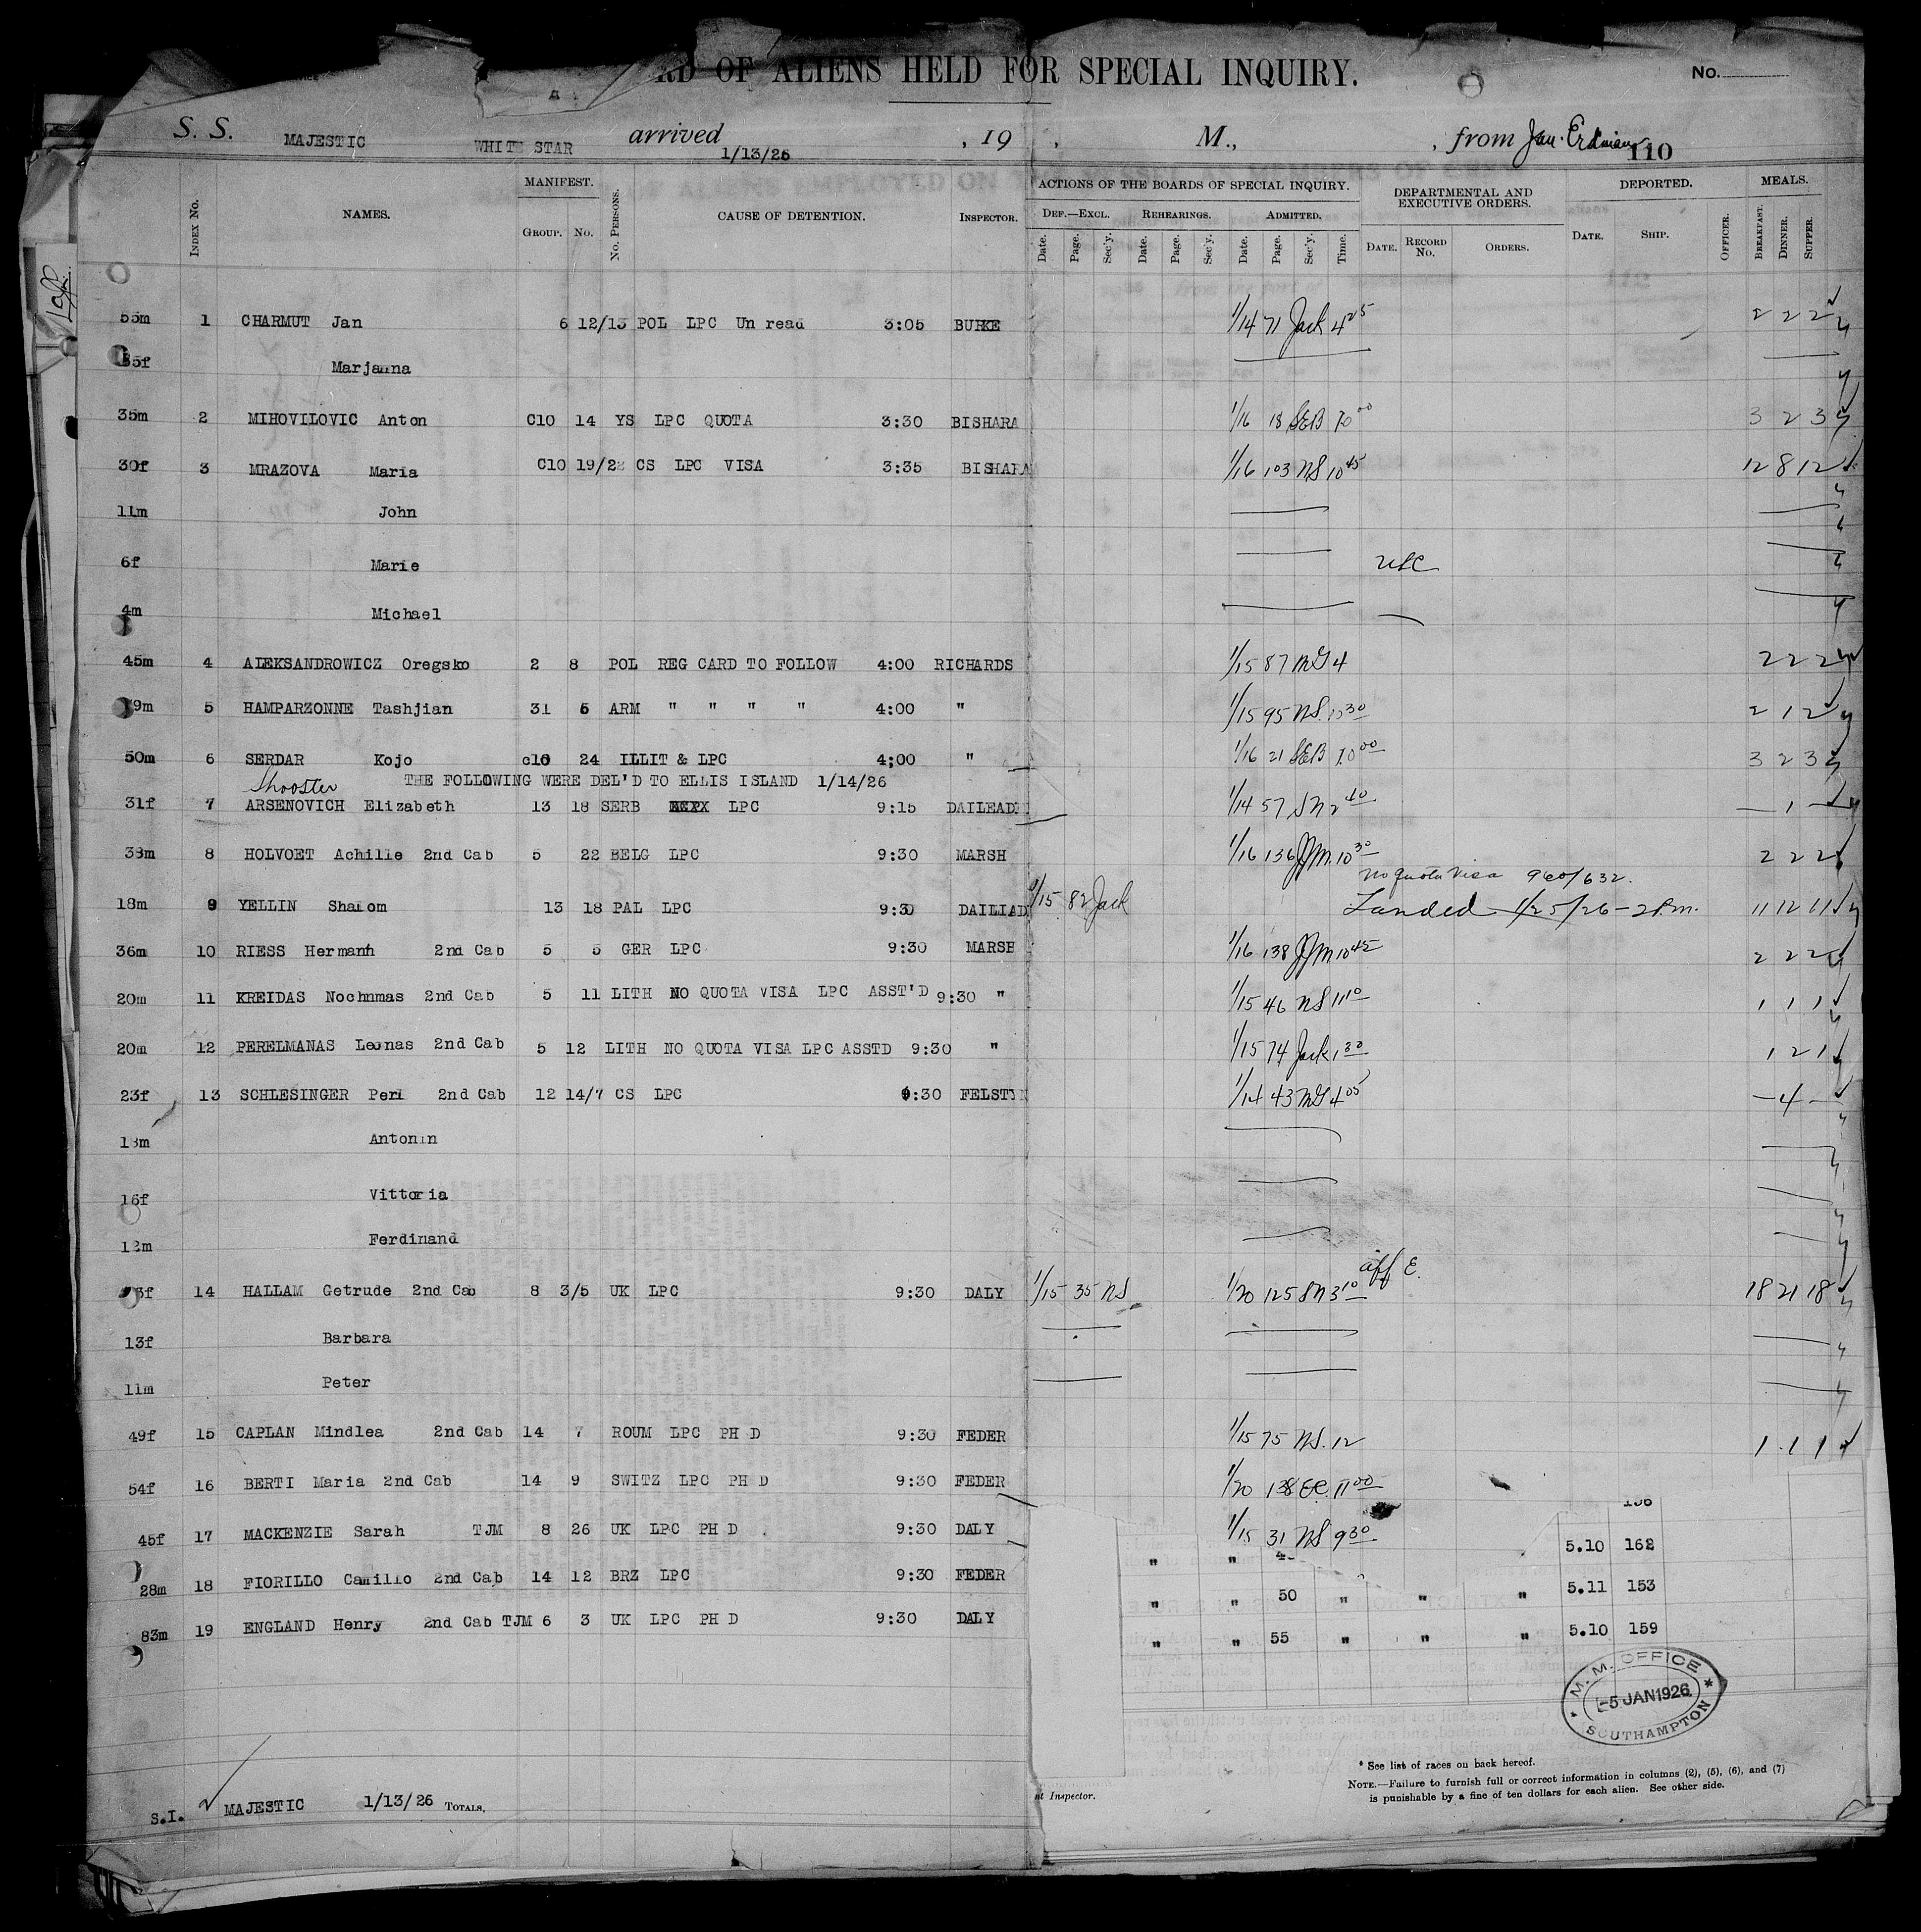 RD OF ALIENS HELD FOR SPECIAL INQUIRY.
No.
S. S. MAJESTIC WHITE STAR arrived 1/13/26 , 19 , M., , from Jan. 110
Index No. NAMES. MANIFEST. Group. No. No. Persons. CAUSE OF DETENTION. Inspector. ACTIONS OF THE BOARDS OF SPECIAL INQUIRY. Def.—Excl. Rehearings. Admitted. DEPARTMENTAL AND EXECUTIVE ORDERS. DEPORTED. MEALS.
Date. Page. Sec'y. Date. Page. Sec'y. Date. Page. Sec'y. Time. Date. Record No. Orders. Date. Ship. Officer. Breakfast. Dinner. Supper.
55m 1 CHARMUT Jan 6 12/13 POL LPC Un read 3:05 BURKE 1/14 71 Jack 4 25 2 2 2
35f Marjanna
35m 2 MIHOVILOVIC Anton C10 14 YS LPC QUOTA 3:30 BISHARA 1/16 18 SEB 10 00 3 2 3
30f 3 MRAZOVA Maria C10 19/22 CS LPC VISA 3:35 BISHARA 1/16 103 NS 10 45 12 8 12
11m John
6f Marie USC
4m Michael
45m 4 ALEKSANDROWICZ Oregsko 2 8 POL REG CARD TO FOLLOW 4:00 RICHARDS 1/15 87 MG 4 2 2 2
9m 5 HAMPARZONNE Tashjian 31 6 ARM " " " " 4:00 " 1/15 95 NS 2 1 2
50m 6 SERDAR Kojo c10 24 ILLIT & LPC 4;00 " 1/16 21 SEB 10 00 3 2 3
Shooster THE FOLLOWING WERE DEL'D TO ELLIS ISLAND 1/14/26
31f 7 ARSENOVICH Elizabeth 13 18 SERB LPC 9:15 DAILEAD 1/14 57 SN 2 40 — 1 —
38m 8 HOLVOET Achille 2nd Cab 5 22 BELG LPC 9:30 MARSH 1/16 136 JJM 10 30 2 2 2
No Quota Visa 960/632.
18m 9 YELLIN Shalom 13 18 PAL LPC 9:30 DAILIAD 1/15 82 Jack Landed 1/25/26 - 2 P.m. 11 12 11
36m 10 RIESS Hermann 2nd Cab 5 5 GER LPC 9:30 MARSH 1/16 138 JJM 10 45 2 2 2
20m 11 KREIDAS Nochmmas 2nd Cab 5 11 LITH NO QUOTA VISA LPC ASST'D 9:30 " 1/15 46 NS 11 10 1 1 1
20m 12 PERELMANAS Leonas 2nd Cab 5 12 LITH NO QUOTA VISA LPC ASSTD 9:30 " 1/15 74 Jack 1 2 1
23f 13 SCHLESINGER Perl 2nd Cab 12 14/7 CS LPC 9:30 FELSTIN 1/14 43 MG 4 05 — 4 —
18m Antonin
16f Vittoria
12m Ferdinand
aff E.
3f 14 HALLAM Getrude 2nd Cab 8 3/5 UK LPC 9:30 DALY 1/15 35 NS 1/20 125 SN 3 10 18 21 18
13f Barbara
11m Peter
49f 15 CAPLAN Mindlea 2nd Cab 14 7 ROUM LPC PH D 9:30 FEDER 1/15 75 NS. 12 1 1 1
54f 16 BERTI Maria 2nd Cab 14 9 SWITZ LPC PH D 9:30 FEDER 1/20 138 EC. 11 00
45f 17 MACKENZIE Sarah TJM 8 26 UK LPC PH D 9:30 DALY 1/15 31 NS 9 30
" " 5.10 162
28m 18 FIORILLO Camillo 2nd Cab 14 12 BRZ LPC 9:30 FEDER " " 50 " " " 5.11 153
83m 19 ENGLAND Henry 2nd Cab TJM 6 3 UK LPC PH D 9:30 DALY " " 55 " " " 5.10 159
M. M. OFFICE
-5 JAN 1926
SOUTHAMPTON
* See list of races on back hereof.
Note.—Failure to furnish full or correct information in columns (2), (5), (6), and (7)
is punishable by a fine of ten dollars for each alien. See other side.
nt Inspector.
S.I. MAJESTIC 1/13/26 Totals,